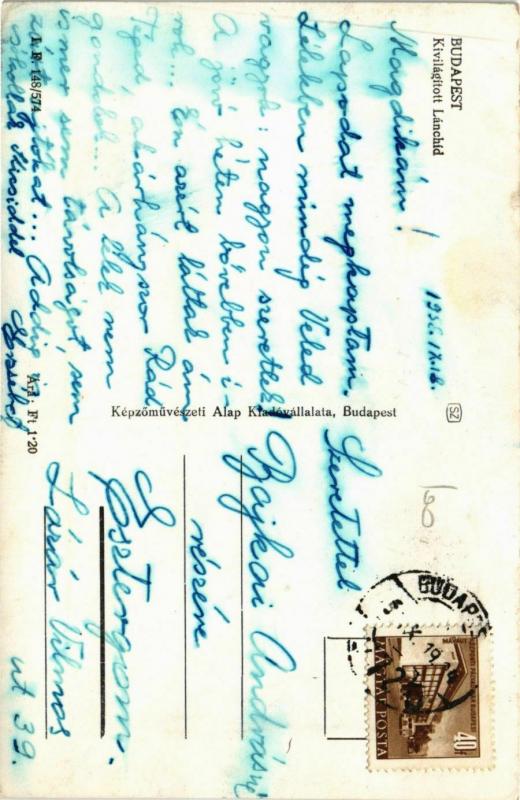 BUDAPEST
Kivilágított Lánchíd
1956. IX. 18.
Magdikám!
Lapodat megkaptam.
Lélekben mindég Veled
vagyok: nagyon szeretlek!
A jövő héten bővebben í-
rok. Én azért láttál ám
Téged, akárhányszor Rád
gondolok... A lélek nem
ismer sem távolságot, sem
... Addig is
csókollak
L. F. 148/574
Ára: Ft 1·20
Képzőművészeti Alap Kiadóvállalata, Budapest
SZ
Szeretettel
Bajkai Andrásné
részére
Esztergom.
Lázár Vilmos
út 39.
90
BUDAPEST
MAGYAR POSTA
40f